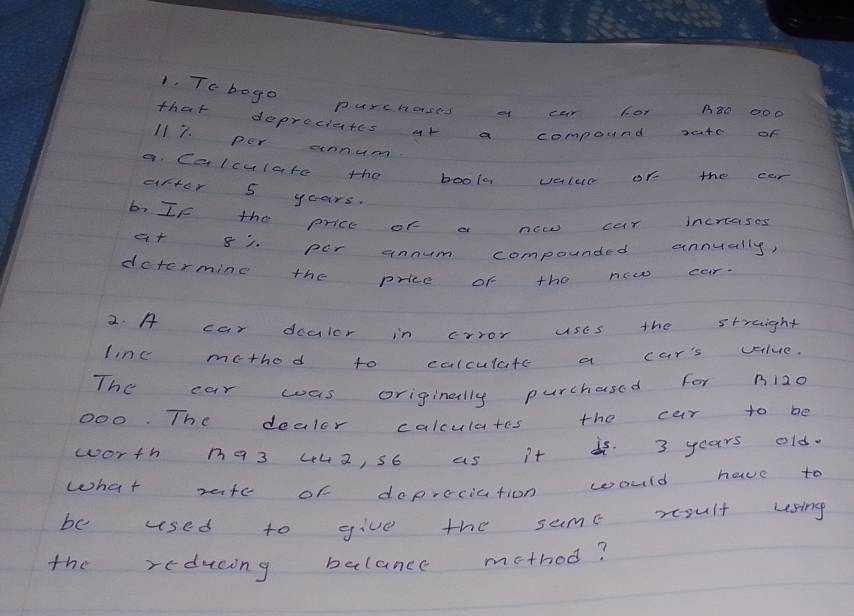 1. Tebogo purchases a car for R80 000
that depreciates at a compound rate of
11 % per annum.
a. Calculate the book value of the car
after 5 years.
b, If the price of a new car increases
at 8 % per annum compounded annually,
determine the price of the new car.
2. A car dealer in error uses the straight
line method to calculate a car's value.
The car was originally purchased for R120
000. The dealer calculates the car to be
worth R93 442,56 as it is. 3 years old.
what rate of depreciation would have to
be used to give the same result using
the reducing balance method?